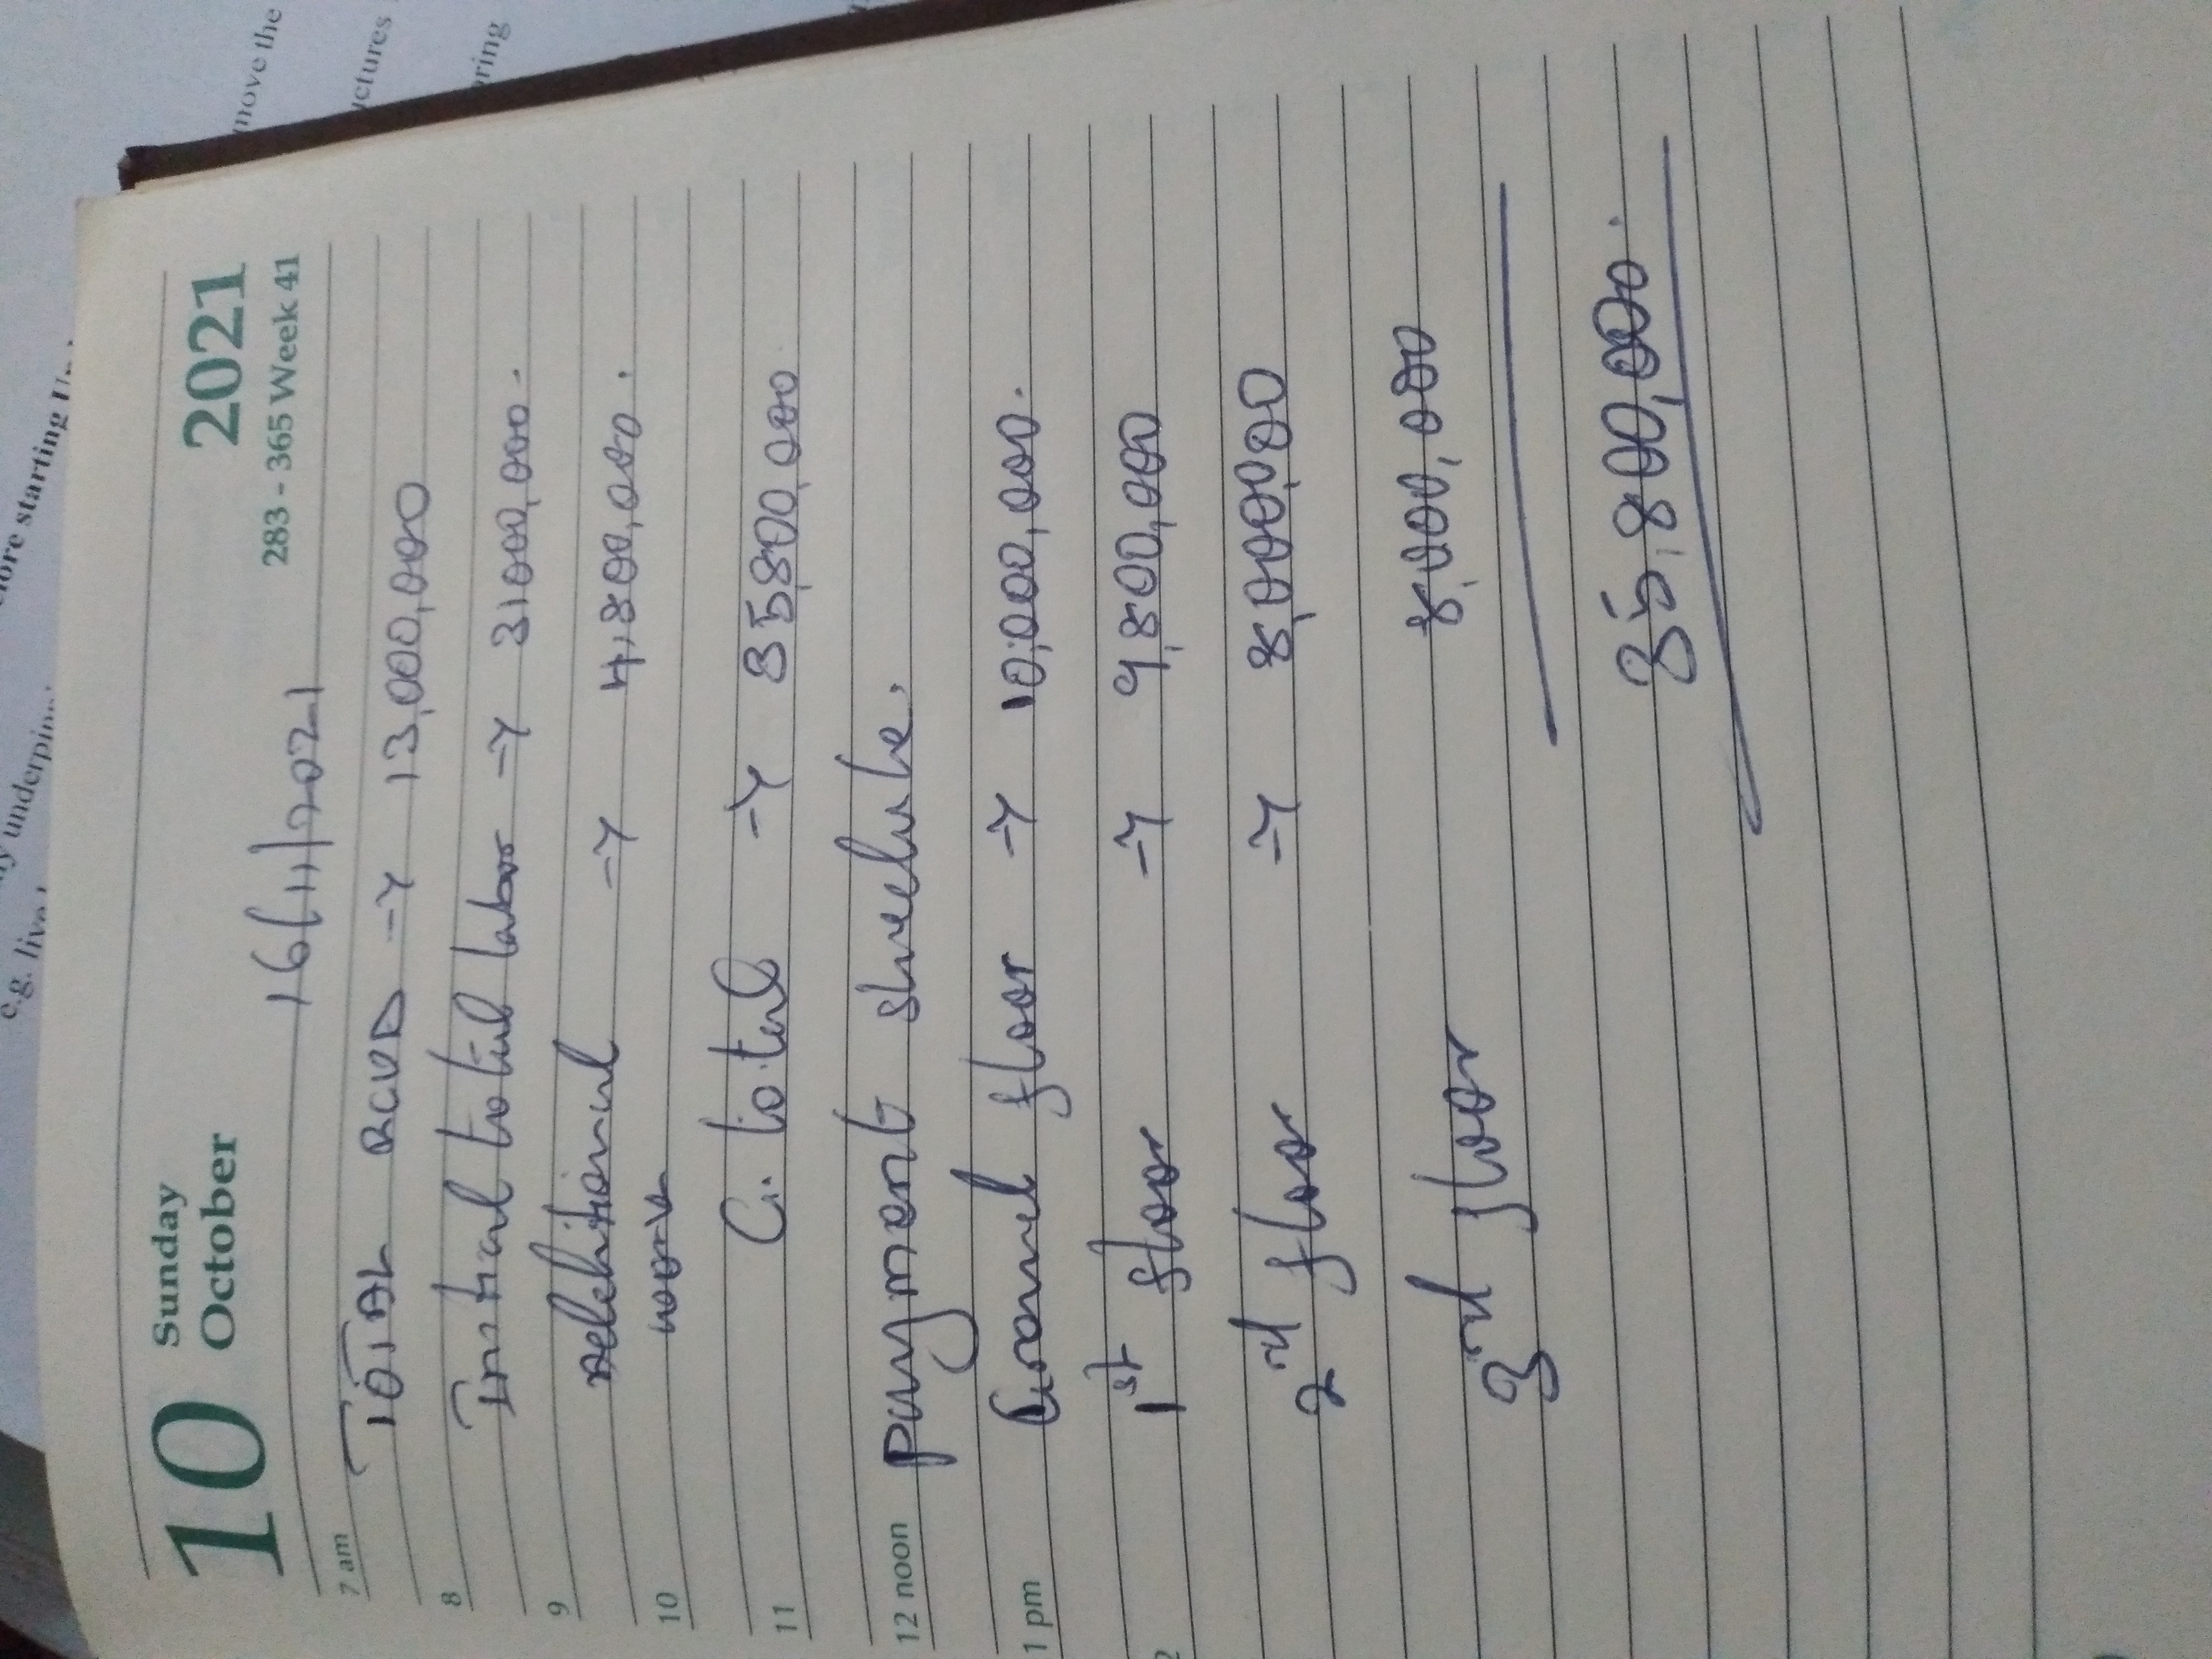 e.g. live
underpinni
ore starting Un
10 Sunday
October
2021
283 - 365 Week 41
move the
ctures
ring
16/11/2021
7 am
TOTAL RCVD → 13,000,000
8
Initial total labor → 31000,000.
9
Additional → 4,800,000.
10
work
G. total → 35,800,000
11
12 noon
payment shedule.
1 pm
Ground floor → 10,000,000.
2
1st floor → 9,800,000
2nd floor → 8,000,000
3rd floor 8,000,000
35,800,000.